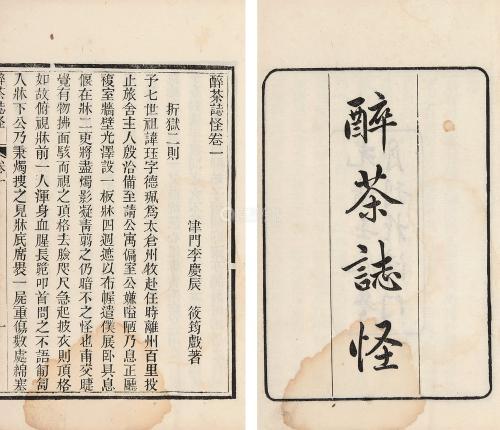 醉茶誌怪
醉茶誌怪卷一
津門李慶辰 筱筠戲著
折獄二則
予七世祖諱珏字德珮為太倉州牧赴任時離州百里投
止旅舍主人殷洽備至請公寓偏室公嫌隘陋乃息正廳
複室墻壁光澤設一板牀四週遮以布幄遣僕展卧具息
偃在牀二更將盡燭影凝青剪之仍暗不之怪也甫交睫
覺有物拂面駭而視之頂格去臉咫尺急起披衣則頂格
如故俯視牀前一人渾身血腥長跪叩首問之不語匍匐
入牀下公乃秉燭搜之見牀底席裹一屍重傷數處綿塞
醉茶誌怪 卷一 一